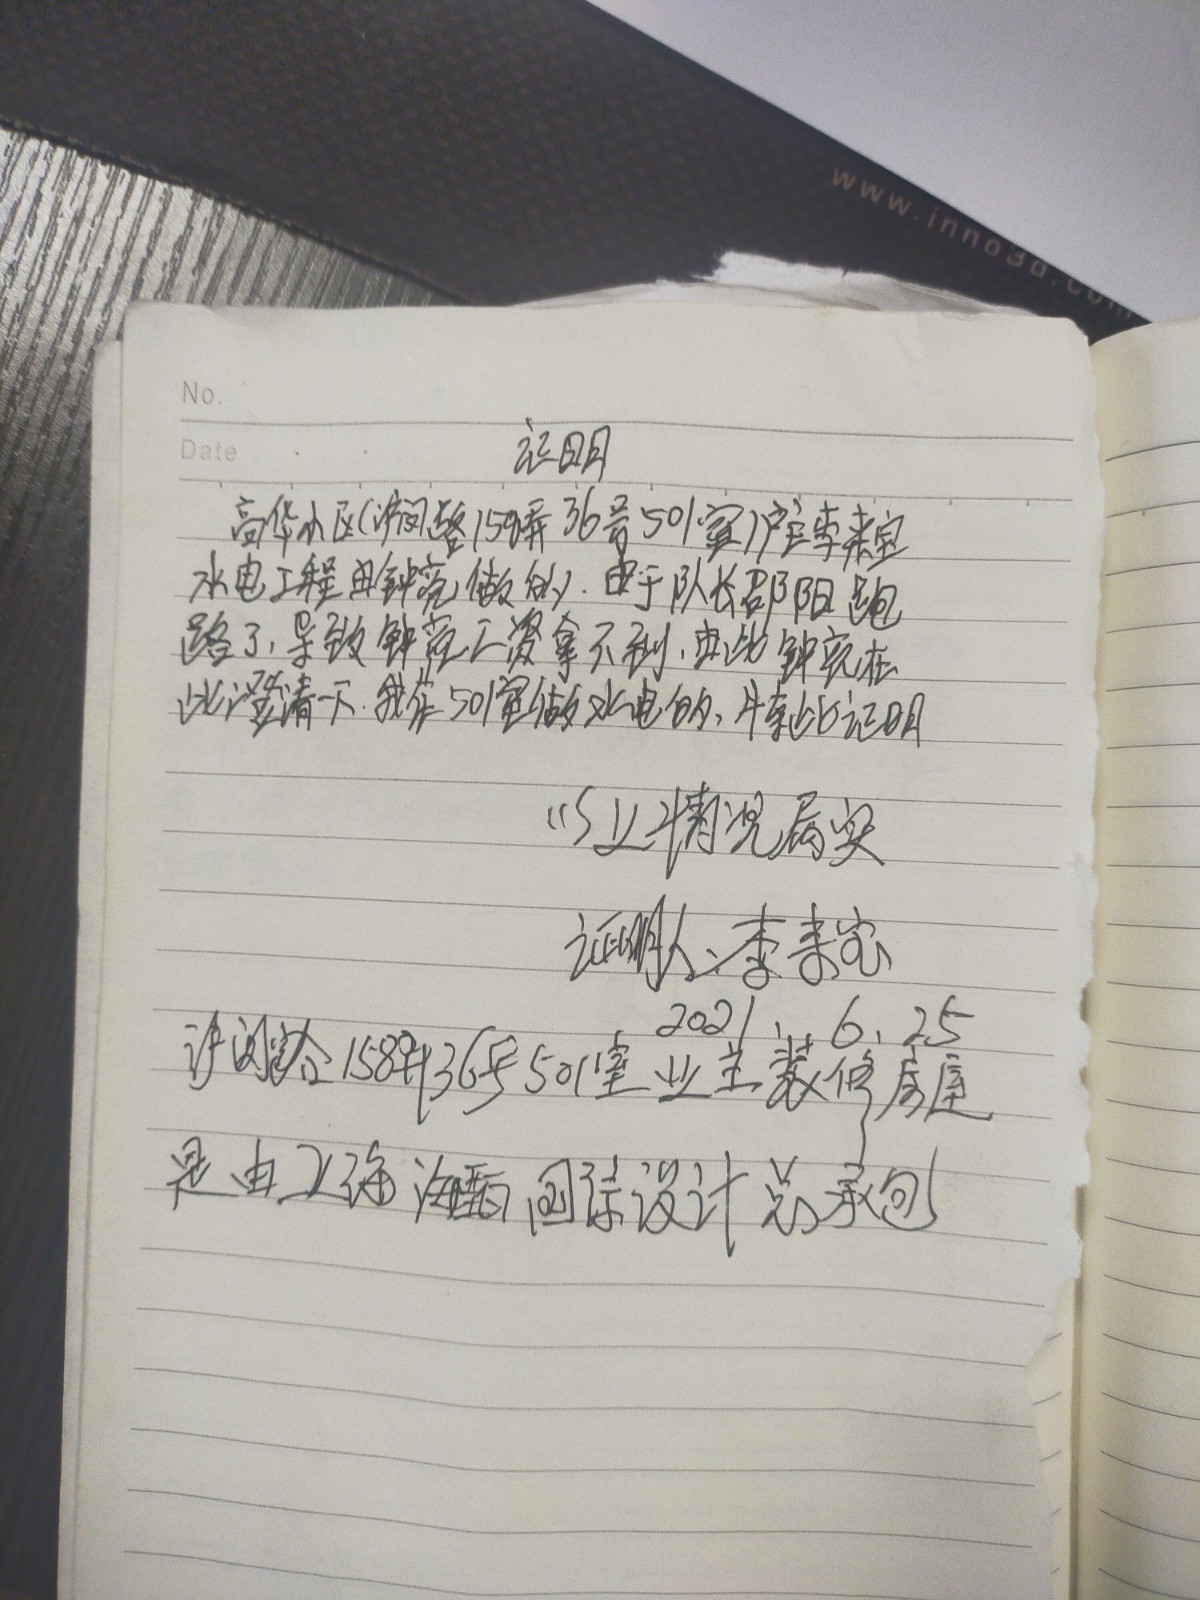 www.inno3d.com
No.
Date
证明
高华小区(沪闵路158弄36号501室)户主李来宝
水电工程由钟亮做的,由于队长邵阳跑
路了,导致钟亮工资拿不到,由此钟亮在
此澄清一下,我在501室做水电的,特此证明
以上情况属实
证明人:李来宝
2021、6、25
沪闵路158弄36号501室业主装修房屋
是由上海 国际设计总承包